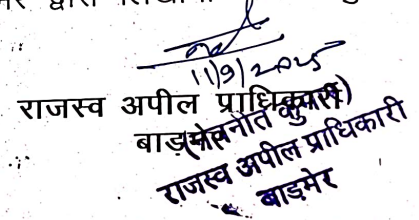 द्वारा
11/9/2025
राजस्व अपील प्राधिकारी
बाड़मेर
(नवनीत कुमार)
राजस्व अपील प्राधिकारी
बाड़मेर